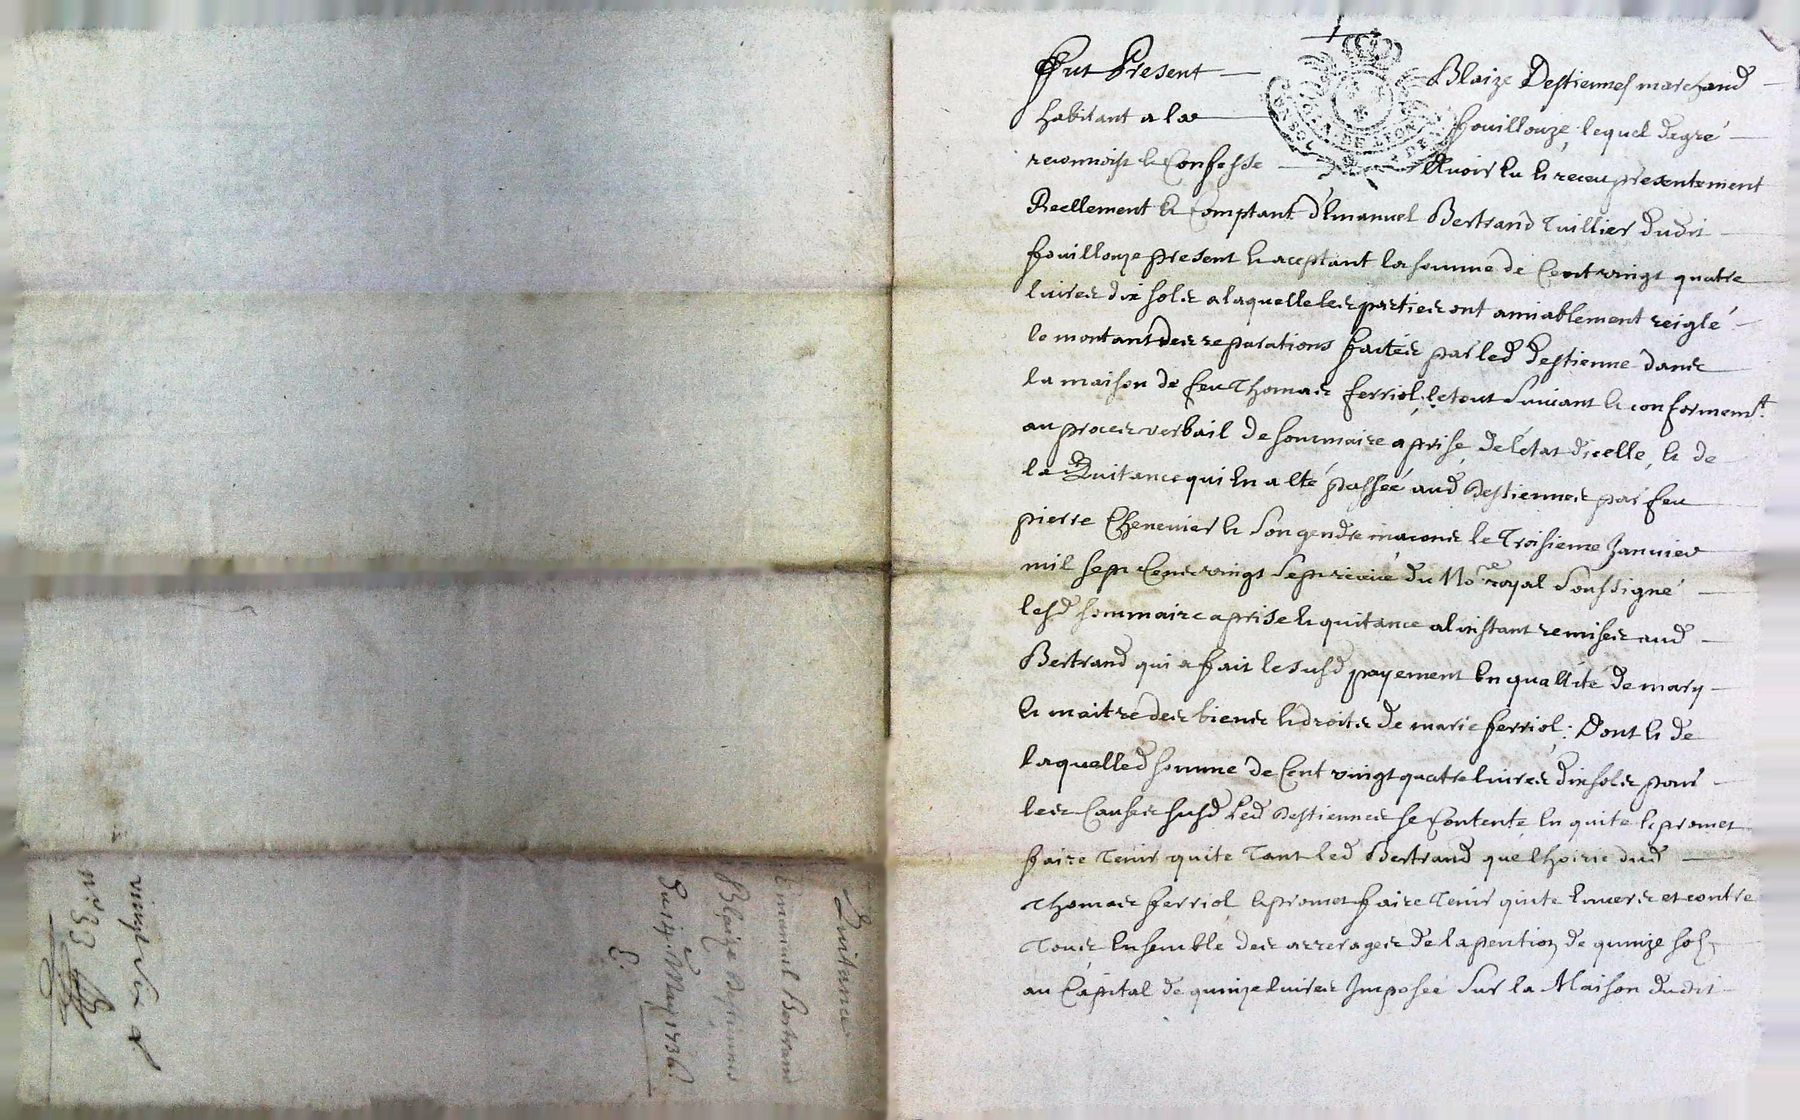 Fut Present Blaize Destiennes marchand
habitant a la fouillouze, lequel de gré
reconnoist & Confesse Avoir Eu & receu presentement
Reellement & Comptant d'Emanuel Bertrand Tuillier dudit
fouillouze present & aceptant la somme de Cent vingt quatre
livres dix sols a laquelle les parties ont amiablement reiglé
le montant des reparations faites par led Destienne dans
la maison de feu Thomas ferriol, le tout Suivant & conformemt.
au proces verbail de sommaire aprise de l'état d'icelle, & de
la Quitance qui En a Eté passée aud Destiennes par feu
pierre Chenevier & Son gendre macons le Troisieme Janvier
mil sept Cents vingt Sept receüe du Nore royal Soussigné
lesd sommaire aprise & quitance a l'instant remises aud
Bertrand qui a fait le susd payement En quallité de mary
& maitre des biens & droits de marie ferriol: Dont & de
laquelled somme de Cent vingt quatre livres dix sols pour
les Causes susd Led Destiennes se Contente En quite & promet
faire Tenir quite Tant led Bertrand que l'hoirie dud
Thomas ferriol & promet faire Tenir quite Envers et contre
Tous Ensemble des arrerages de la pention de quinze sols
au Capital de quinze livres Imposée Sur la Maison dudit
Quitance
Emanuel Bertrand
Blaize Destiennes
Du 19e May 1736.
E.
vingt six
n° 33